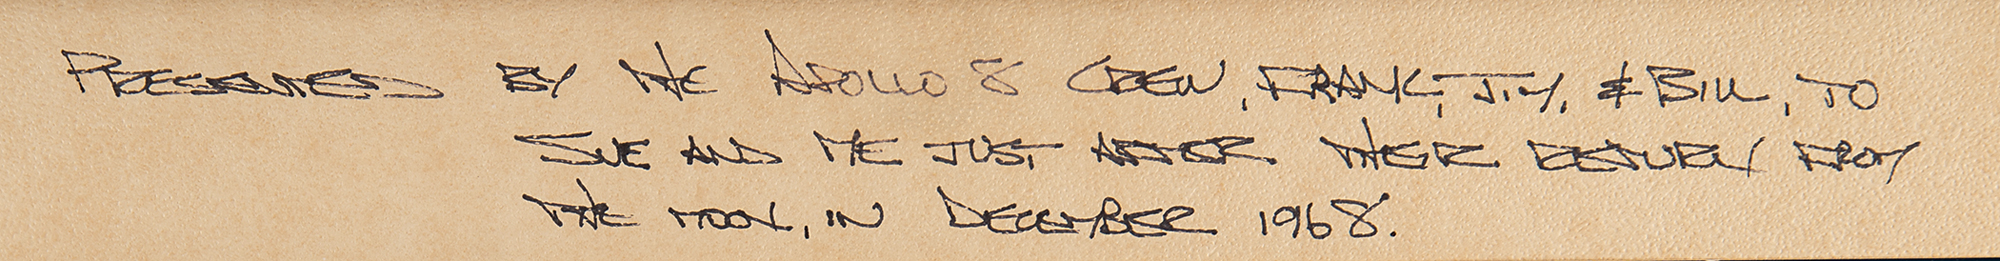 PRESENTED BY THE APOLLO 8 CREW, FRANK, JIM, & BILL, TO
SUE AND ME JUST AFTER THEIR RETURN FROM
THE MOON, IN DECEMBER 1968.